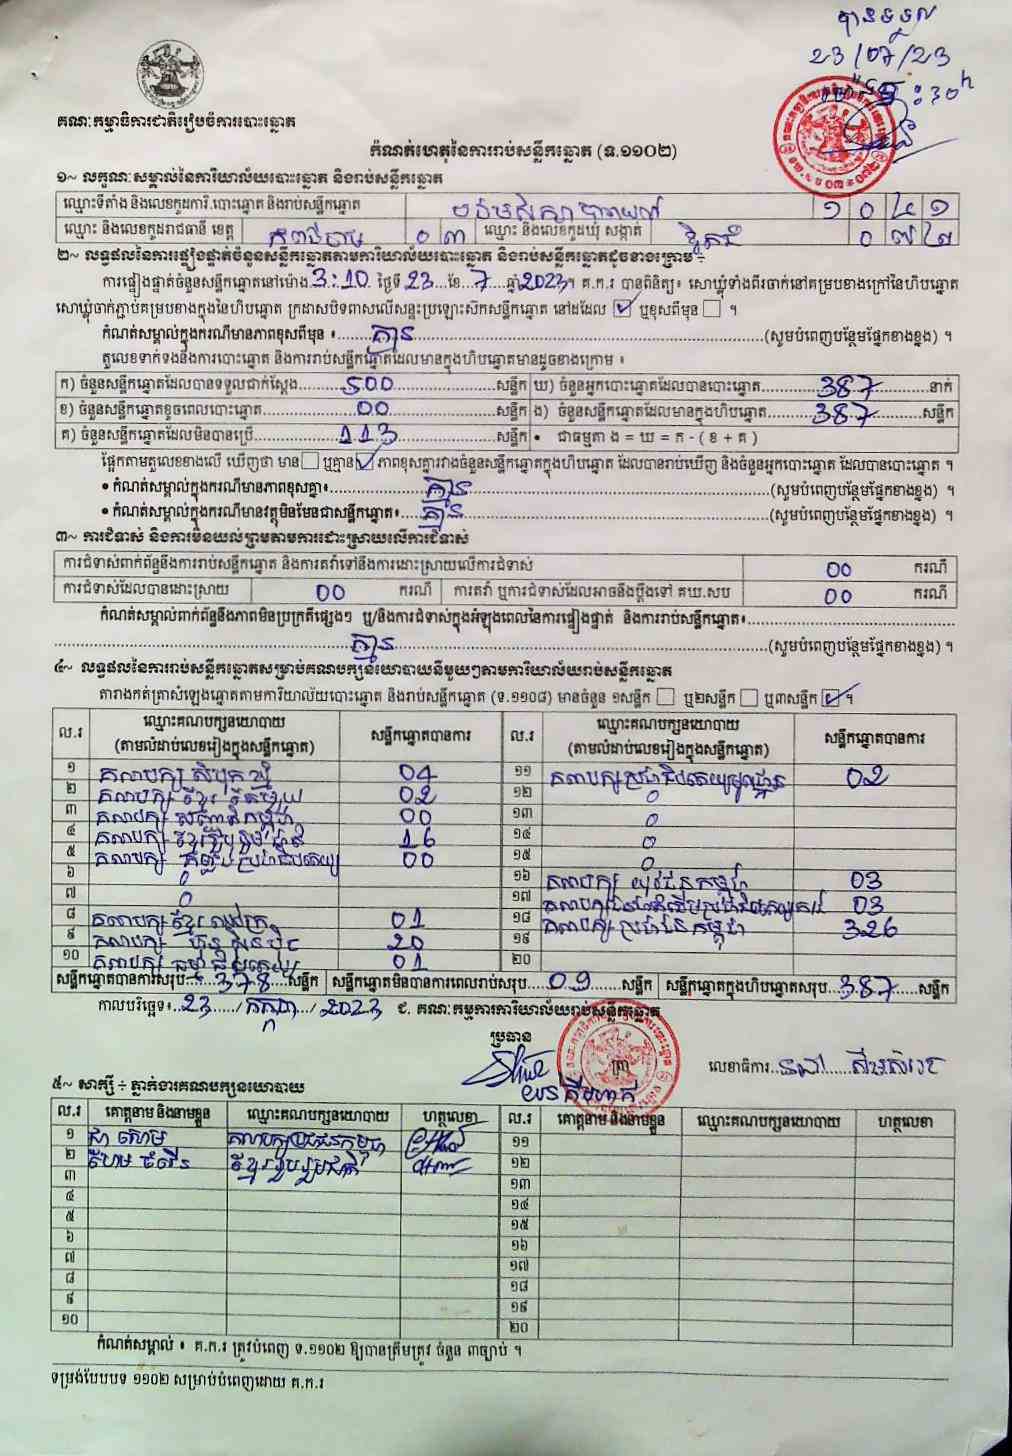 បានទទួល
23/07/23
គណៈកម្មាធិការជាតិរៀបចំការបោះឆ្នោត
កំណត់ហេតុនៃការរាប់សន្លឹកឆ្នោត (ទ.១១០២)
១~ លក្ខណៈសម្គាល់នៃការិយាល័យបោះឆ្នោត និងរាប់សន្លឹកឆ្នោត
ឈ្មោះទីតាំង និងលេខកូដការិ.បោះឆ្នោត និងរាប់សន្លឹកឆ្នោត ១ ០ ៤ ១
ឈ្មោះ និងលេខកូដរាជធានី ខេត្ត កំពង់ចាម ០ ៣ ឈ្មោះ និងលេខកូដឃុំ សង្កាត់ ០ ៧ ២
២~ លទ្ធផលនៃការផ្ទៀងផ្ទាត់ចំនួនសន្លឹកឆ្នោតតាមការិយាល័យបោះឆ្នោត និងរាប់សន្លឹកឆ្នោតដូចខាងក្រោម ÷
ការផ្ទៀងផ្ទាត់ចំនួនសន្លឹកឆ្នោតនៅម៉ោង 3:10 ថ្ងៃទី 23 ខែ 7 ឆ្នាំ 2023។ គ.ក.រ បានពិនិត្យ៖ សោឃ្លុំទាំងពីរចាក់នៅគម្របខាងក្រៅនៃហិបឆ្នោត
សោឃ្លុំចាក់ភ្ជាប់គម្របខាងក្នុងនៃហិបឆ្នោត ក្រដាសបិទពាសលើសន្ទះប្រឡោះសិកសន្លឹកឆ្នោត នៅដដែល ☑ ឬខុសពីមុន ☐ ។
កំណត់សម្គាល់ក្នុងករណីមានភាពខុសពីមុន ៖ គ្មាន (សូមបំពេញបន្ថែមផ្នែកខាងខ្នង) ។
តួលេខទាក់ទងនឹងការបោះឆ្នោត និងការរាប់សន្លឹកឆ្នោតដែលមានក្នុងហិបឆ្នោតមានដូចខាងក្រោម ៖
ក) ចំនួនសន្លឹកឆ្នោតដែលបានទទួលជាក់ស្តែង 500 សន្លឹក ឃ) ចំនួនអ្នកបោះឆ្នោតដែលបានបោះឆ្នោត 387 នាក់
ខ) ចំនួនសន្លឹកឆ្នោតខូចពេលបោះឆ្នោត 00 សន្លឹក ង) ចំនួនសន្លឹកឆ្នោតដែលមានក្នុងហិបឆ្នោត 387 សន្លឹក
គ) ចំនួនសន្លឹកឆ្នោតដែលមិនបានប្រើ 113 សន្លឹក • ជាធម្មតា ង = ឃ = ក - ( ខ + គ )
ផ្អែកតាមតួលេខខាងលើ ឃើញថា មាន ☐ ឬគ្មាន ☑ ភាពខុសគ្នារវាងចំនួនសន្លឹកឆ្នោតក្នុងហិបឆ្នោត ដែលបានរាប់ឃើញ និងចំនួនអ្នកបោះឆ្នោត ដែលបានបោះឆ្នោត ។
• កំណត់សម្គាល់ក្នុងករណីមានភាពខុសគ្នា៖ គ្មាន (សូមបំពេញបន្ថែមផ្នែកខាងខ្នង) ។
• កំណត់សម្គាល់ក្នុងករណីមានវត្ថុមិនមែនជាសន្លឹកឆ្នោត៖ គ្មាន (សូមបំពេញបន្ថែមផ្នែកខាងខ្នង) ។
៣~ ការជំទាស់ និងការមិនយល់ព្រមតាមការដោះស្រាយលើការជំទាស់
ការជំទាស់ពាក់ព័ន្ធនឹងការរាប់សន្លឹកឆ្នោត និងការតវ៉ាទៅនឹងការដោះស្រាយលើការជំទាស់ 00 ករណី
ការជំទាស់ដែលបានដោះស្រាយ 00 ករណី ការតវ៉ា ឬការជំទាស់ដែលអាចនឹងប្តឹងទៅ គឃ.សប 00 ករណី
កំណត់សម្គាល់ពាក់ព័ន្ធនឹងភាពមិនប្រក្រតីផ្សេងៗ ឬ/និងការជំទាស់ក្នុងអំឡុងពេលនៃការផ្ទៀងផ្ទាត់ និងការរាប់សន្លឹកឆ្នោត៖
គ្មាន (សូមបំពេញបន្ថែមផ្នែកខាងខ្នង) ។
៤~ លទ្ធផលនៃការរាប់សន្លឹកឆ្នោតសម្រាប់គណបក្សនយោបាយនីមួយៗតាមការិយាល័យរាប់សន្លឹកឆ្នោត
តារាងកត់ត្រាសំឡេងឆ្នោតតាមការិយាល័យបោះឆ្នោត និងរាប់សន្លឹកឆ្នោត (ទ.១១០៨) មានចំនួន ១សន្លឹក ☐ ឬ២សន្លឹក ☐ ឬ៣សន្លឹក ☑ ។
ល.រ ឈ្មោះគណបក្សនយោបាយ (តាមលំដាប់លេខរៀងក្នុងសន្លឹកឆ្នោត) សន្លឹកឆ្នោតបានការ ល.រ ឈ្មោះគណបក្សនយោបាយ (តាមលំដាប់លេខរៀងក្នុងសន្លឹកឆ្នោត) សន្លឹកឆ្នោតបានការ
១ គណបក្ស សំបុកឃ្មុំ 04 ១១ គណបក្សប្រជាធិបតេយ្យមូលដ្ឋាន 02
២ គណបក្ស ខ្មែរ 02 ១២ 0
៣ គណបក្ស សញ្ជាតិកម្ពុជា 00 ១៣ 0
៤ គណបក្ស ខ្មែររួបរួមជាតិ 16 ១៤ 0
៥ គណបក្ស ប្រជាធិបតេយ្យ 00 ១៥ 0
៦ 0 ១៦ គណបក្ស យុវជនកម្ពុជា 03
៧ 0 ១៧ 03
៨ គណបក្ស ខ្មែរ 01 ១៨ គណបក្ស ប្រជាជនកម្ពុជា 326
៩ គណបក្ស ហ៊្វុនស៊ិនប៉ិច 20 ១៩
១០ គណបក្ស ធម្មាធិបតេយ្យ 01 ២០
សន្លឹកឆ្នោតបានការសរុប 378 សន្លឹក សន្លឹកឆ្នោតមិនបានការពេលរាប់សរុប 09 សន្លឹក សន្លឹកឆ្នោតក្នុងហិបឆ្នោតសរុប 387 សន្លឹក
កាលបរិច្ឆេទ៖ 23 / កក្កដា / 2023 ជ. គណៈកម្មការការិយាល័យរាប់សន្លឹកឆ្នោត
ប្រធាន
លេខាធិការ
៥~ សាក្សី ÷ ភ្នាក់ងារគណបក្សនយោបាយ
ល.រ គោត្តនាម និងនាមខ្លួន ឈ្មោះគណបក្សនយោបាយ ហត្ថលេខា ល.រ គោត្តនាម និងនាមខ្លួន ឈ្មោះគណបក្សនយោបាយ ហត្ថលេខា
១ គណបក្សប្រជាជនកម្ពុជា ១១
២ ខ្មែររួបរួមជាតិ ១២
៣ ១៣
៤ ១៤
៥ ១៥
៦ ១៦
៧ ១៧
៨ ១៨
៩ ១៩
១០ ២០
កំណត់សម្គាល់ ៖ គ.ក.រ ត្រូវបំពេញ ទ.១១០២ ឱ្យបានត្រឹមត្រូវ ចំនួន ៣ច្បាប់ ។
ទម្រង់បែបបទ ១១០២ សម្រាប់បំពេញដោយ គ.ក.រ